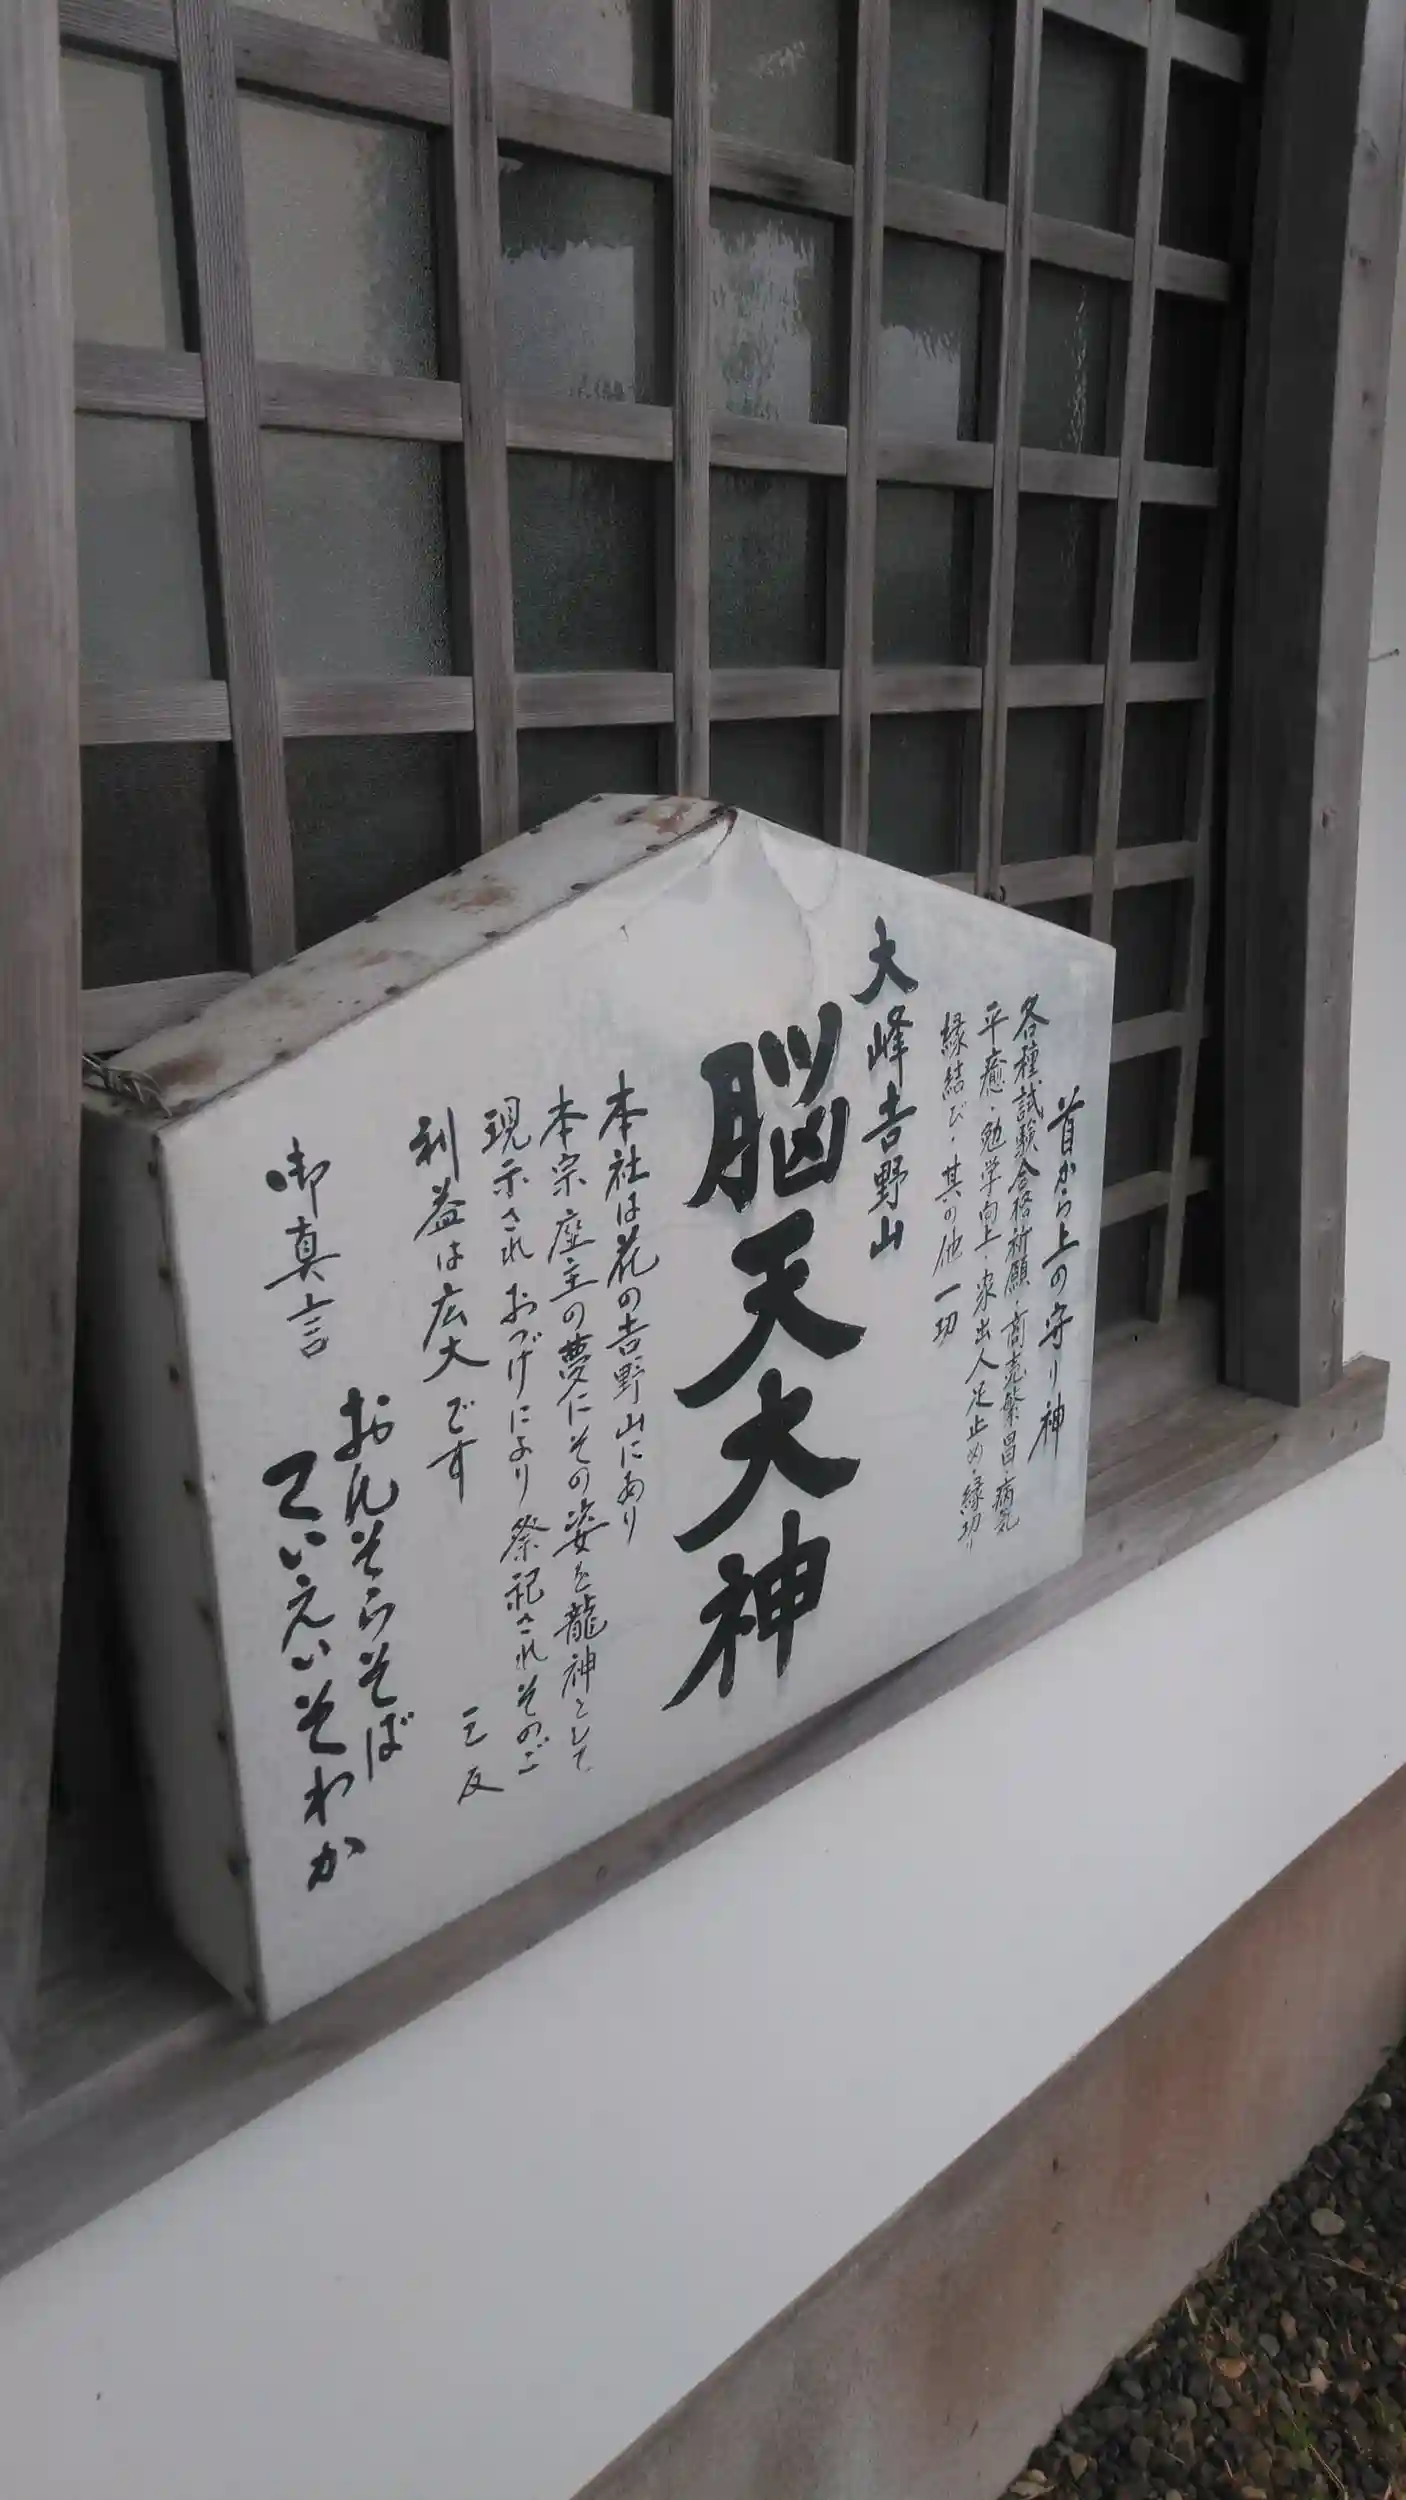 首から上の守り神
各種試験合格祈願・商売繁昌・病気
平癒・勉学向上・家出人足止め・縁切り
縁結び・其の他一切
大峰吉野山
脳天大神
本社は花の吉野山にあり
本宗座主の夢にその姿を龍神として
現示され おつげにより祭祀されそのご
利益は広大です
御真言
三反
おんそらそば
ていえいそわか